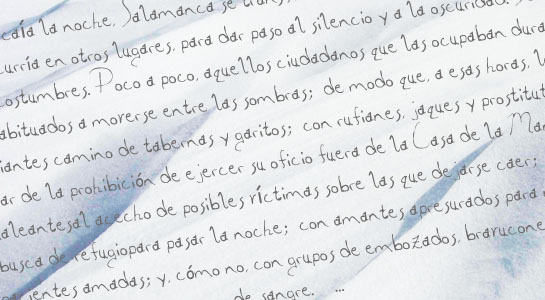 caía la noche, Salamanca se
urría en otros lugares, para dar paso al silencio y a la oscuridad
ostumbres. Poco a poco, aquellos ciudadanos que las ocupaban dura
abituados a moverse entre las sombras; de modo que, a esas horas,
iantes camino de tabernas y garitos; con rufianes, jaques y prostitut
ar de la prohibición de ejercer su oficio fuera de la Casa de la Man
aleantes al acecho de posibles víctimas sobre las que dejarse caer;
busca de refugiopara pasar la noche; con amantes apresurados para
ientes amadas; y, cómo no, con grupos de embozados, bravucone
de sangre. ...